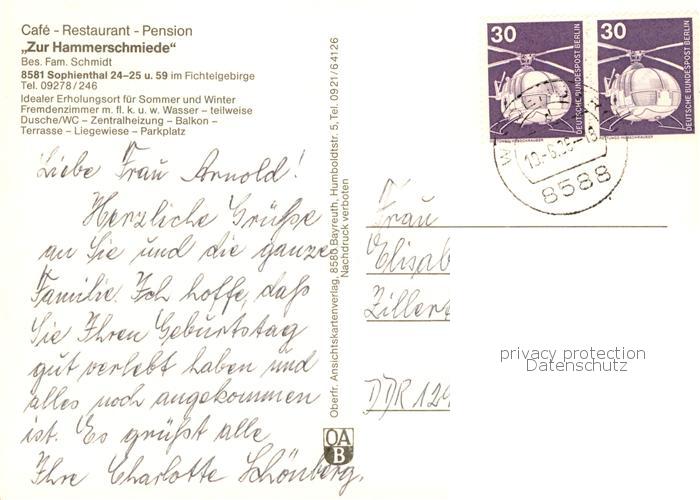 Café - Restaurant - Pension
„Zur Hammerschmiede“
Bes. Fam. Schmidt
8581 Sophienthal 24–25 u. 59 im Fichtelgebirge
Tel. 09278/246
Idealer Erholungsort für Sommer und Winter
Fremdenzimmer m. fl. k. u. w. Wasser – teilweise
Dusche/WC – Zentralheizung – Balkon –
Terrasse – Liegewiese – Parkplatz
Liebe Frau Arnold!
Herzliche Grüße
an Sie und die ganze
Familie. Ich hoffe, daß
Sie Ihren Geburtstag
gut verlebt haben und
alles noch angekommen
ist. Es grüßt alle
Ihre Charlotte Schönberg.
Oberfr. Ansichtskartenverlag, 8580 Bayreuth, Humboldtstr. 5, Tel. 0921/64126
Nachdruck verboten
OA
B
30
DEUTSCHE BUNDESPOST BERLIN
30
DEUTSCHE BUNDESPOST BERLIN
8588
Frau
Elisab
Ziller
DDR 129
privacy protection
Datenschutz